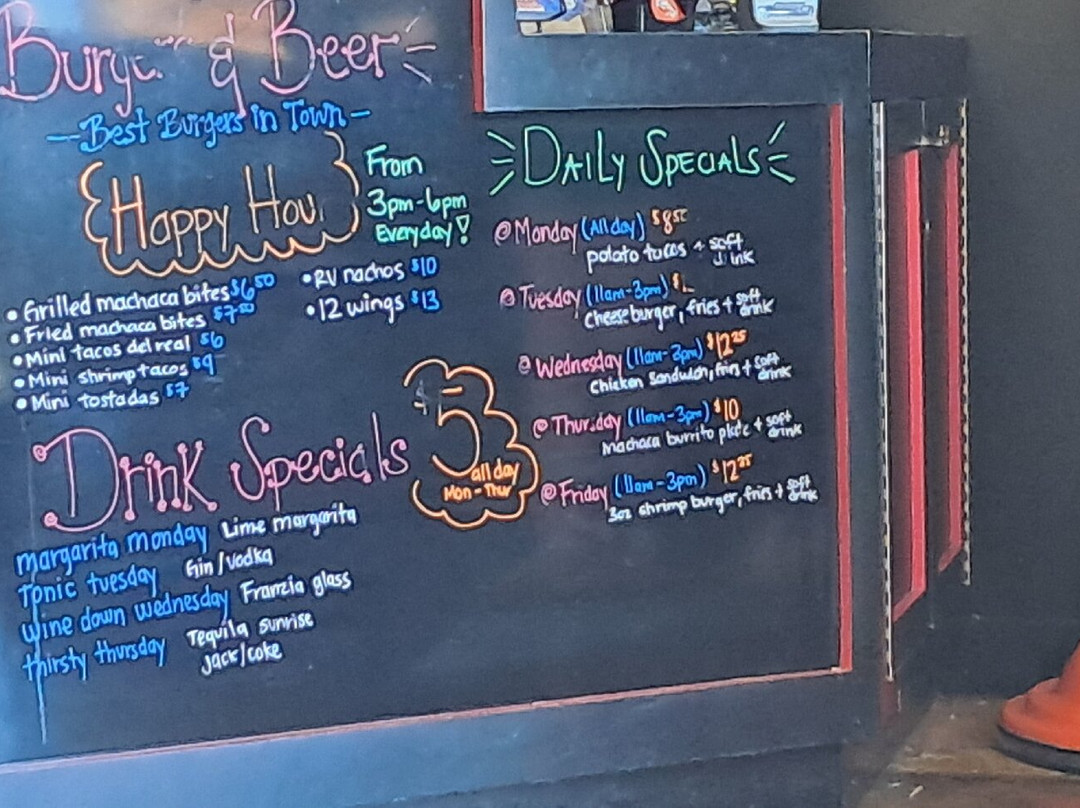 & Beer
Best Burgers in Town
Happy
From
3pm-6pm
Everyday!
• Grilled machaca bites $6.50
• Fried machaca bites $7.50
• Mini tacos del real $6
• Mini shrimp tacos $9
• Mini tostadas $7
• RV nachos $10
• 12 wings $13
Drink Specials
$5
all day
Mon-Thur
margarita monday Lime margarita
Tonic tuesday Gin/vodka
wine down wednesday Franzia glass
thirsty thursday Tequila sunrise
Jack/coke
Daily Specials
@ Monday (All day)
potato + soft
@ Tuesday (11am-3pm)
cheese burger, fries + soft drink
@ Wednesday (11am-3pm) $12.25
Chicken Sandwich, fries + soft drink
@ Thursday (11am-3pm) $10
machaca burrito + soft drink
@ Friday (11am-3pm) $12.25
3oz shrimp burger, fries + soft drink